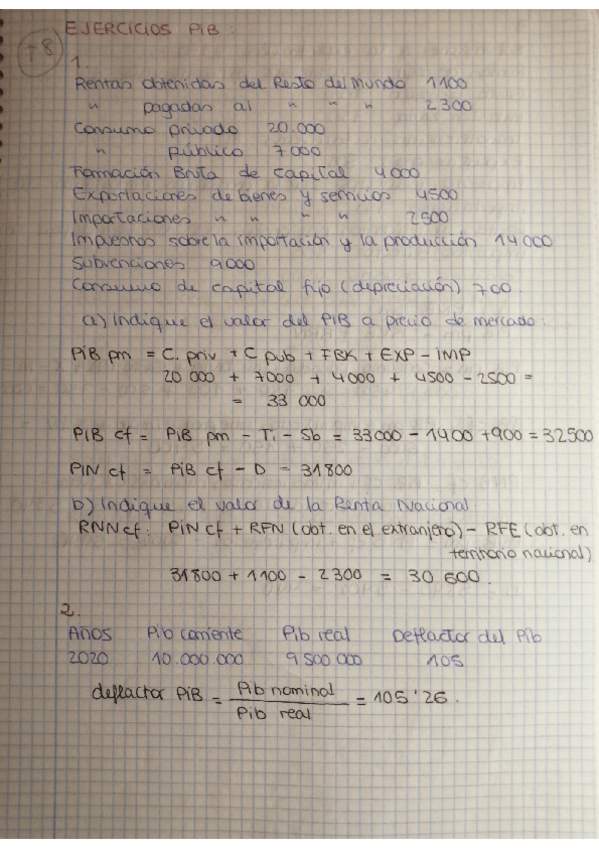 T8
EJERCICIOS PIB:
1.
Rentas obtenidas del Resto del Mundo 1100
" pagadas al " " " 2300
Consumo privado 20.000
" público 7000
Formación Bruta de Capital 4000
Exportaciones de bienes y servicios 4500
Importaciones " " " " 2500
Impuestos sobre la importación y la producción 14000
Subvenciones 9000
Consumo de capital fijo (depreciación) 700.
a) Indique el valor del PIB a precio de mercado:
PIB pm = C. priv + C pub + FBK + EXP - IMP
20 000 + 7000 + 4000 + 4500 - 2500 =
= 33 000
PIB cf = PIB pm - Ti - Sb = 33000 - 1400 + 900 = 32500
PIN cf = PIB cf - D = 31800
b) Indique el valor de la Renta Nacional
RNN cf: PIN cf + RFN (obt. en el extranjero) - RFE (obt. en
territorio nacional)
31800 + 1100 - 2300 = 30 600.
2.
Años Pib corriente Pib real Deflactor del Pib
2020 10.000.000 9 500 000 105
deflactor PIB = Pib nominal / Pib real = 105'26.